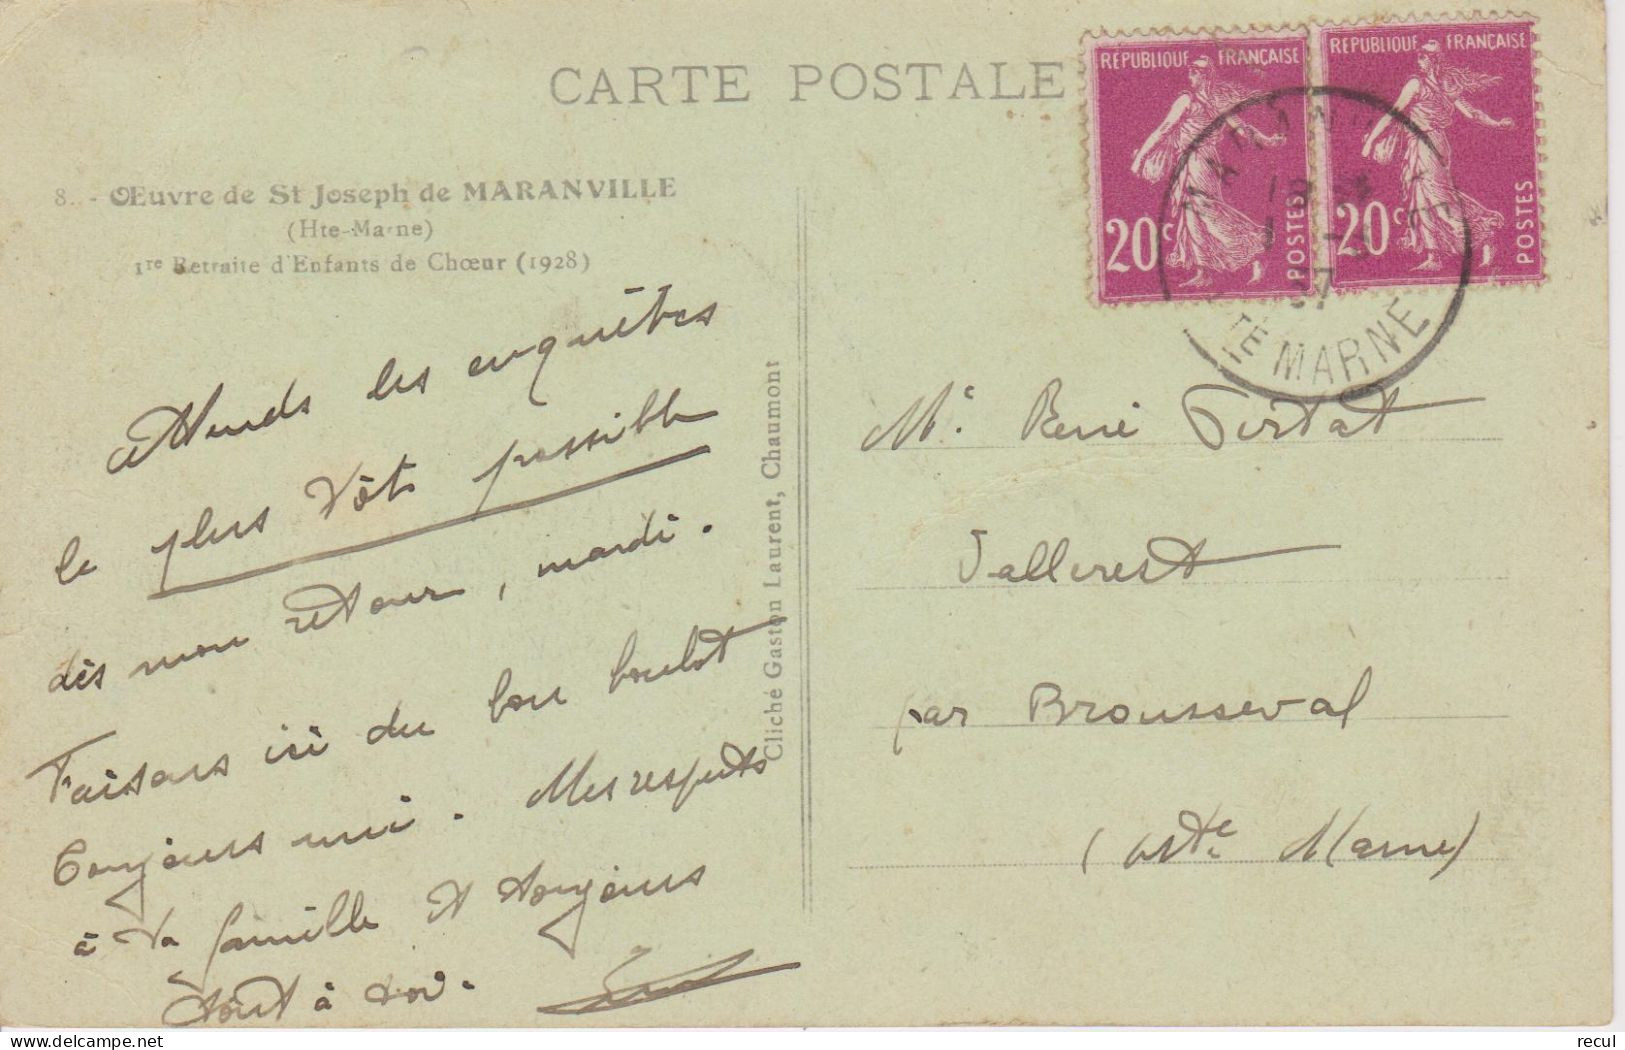 CARTE POSTALE
8. - Œuvre de St Joseph de MARANVILLE
(Hte-Marne)
1re Retraite d'Enfants de Chœur (1928)
attends les enquêtes
le plus tôt possible
dès mon retour, mardi.
Faisons ici du bon boulot
toujours uni. Mes respects
à ta famille et toujours
tout à toi.
Cliché Gaston Laurent, Chaumont
REPUBLIQUE FRANÇAISE
20c
POSTES
REPUBLIQUE FRANÇAISE
20c
POSTES
HTE MARNE
Mr. René
Vallerest
par Brousseval
(Hte Marne)
recul